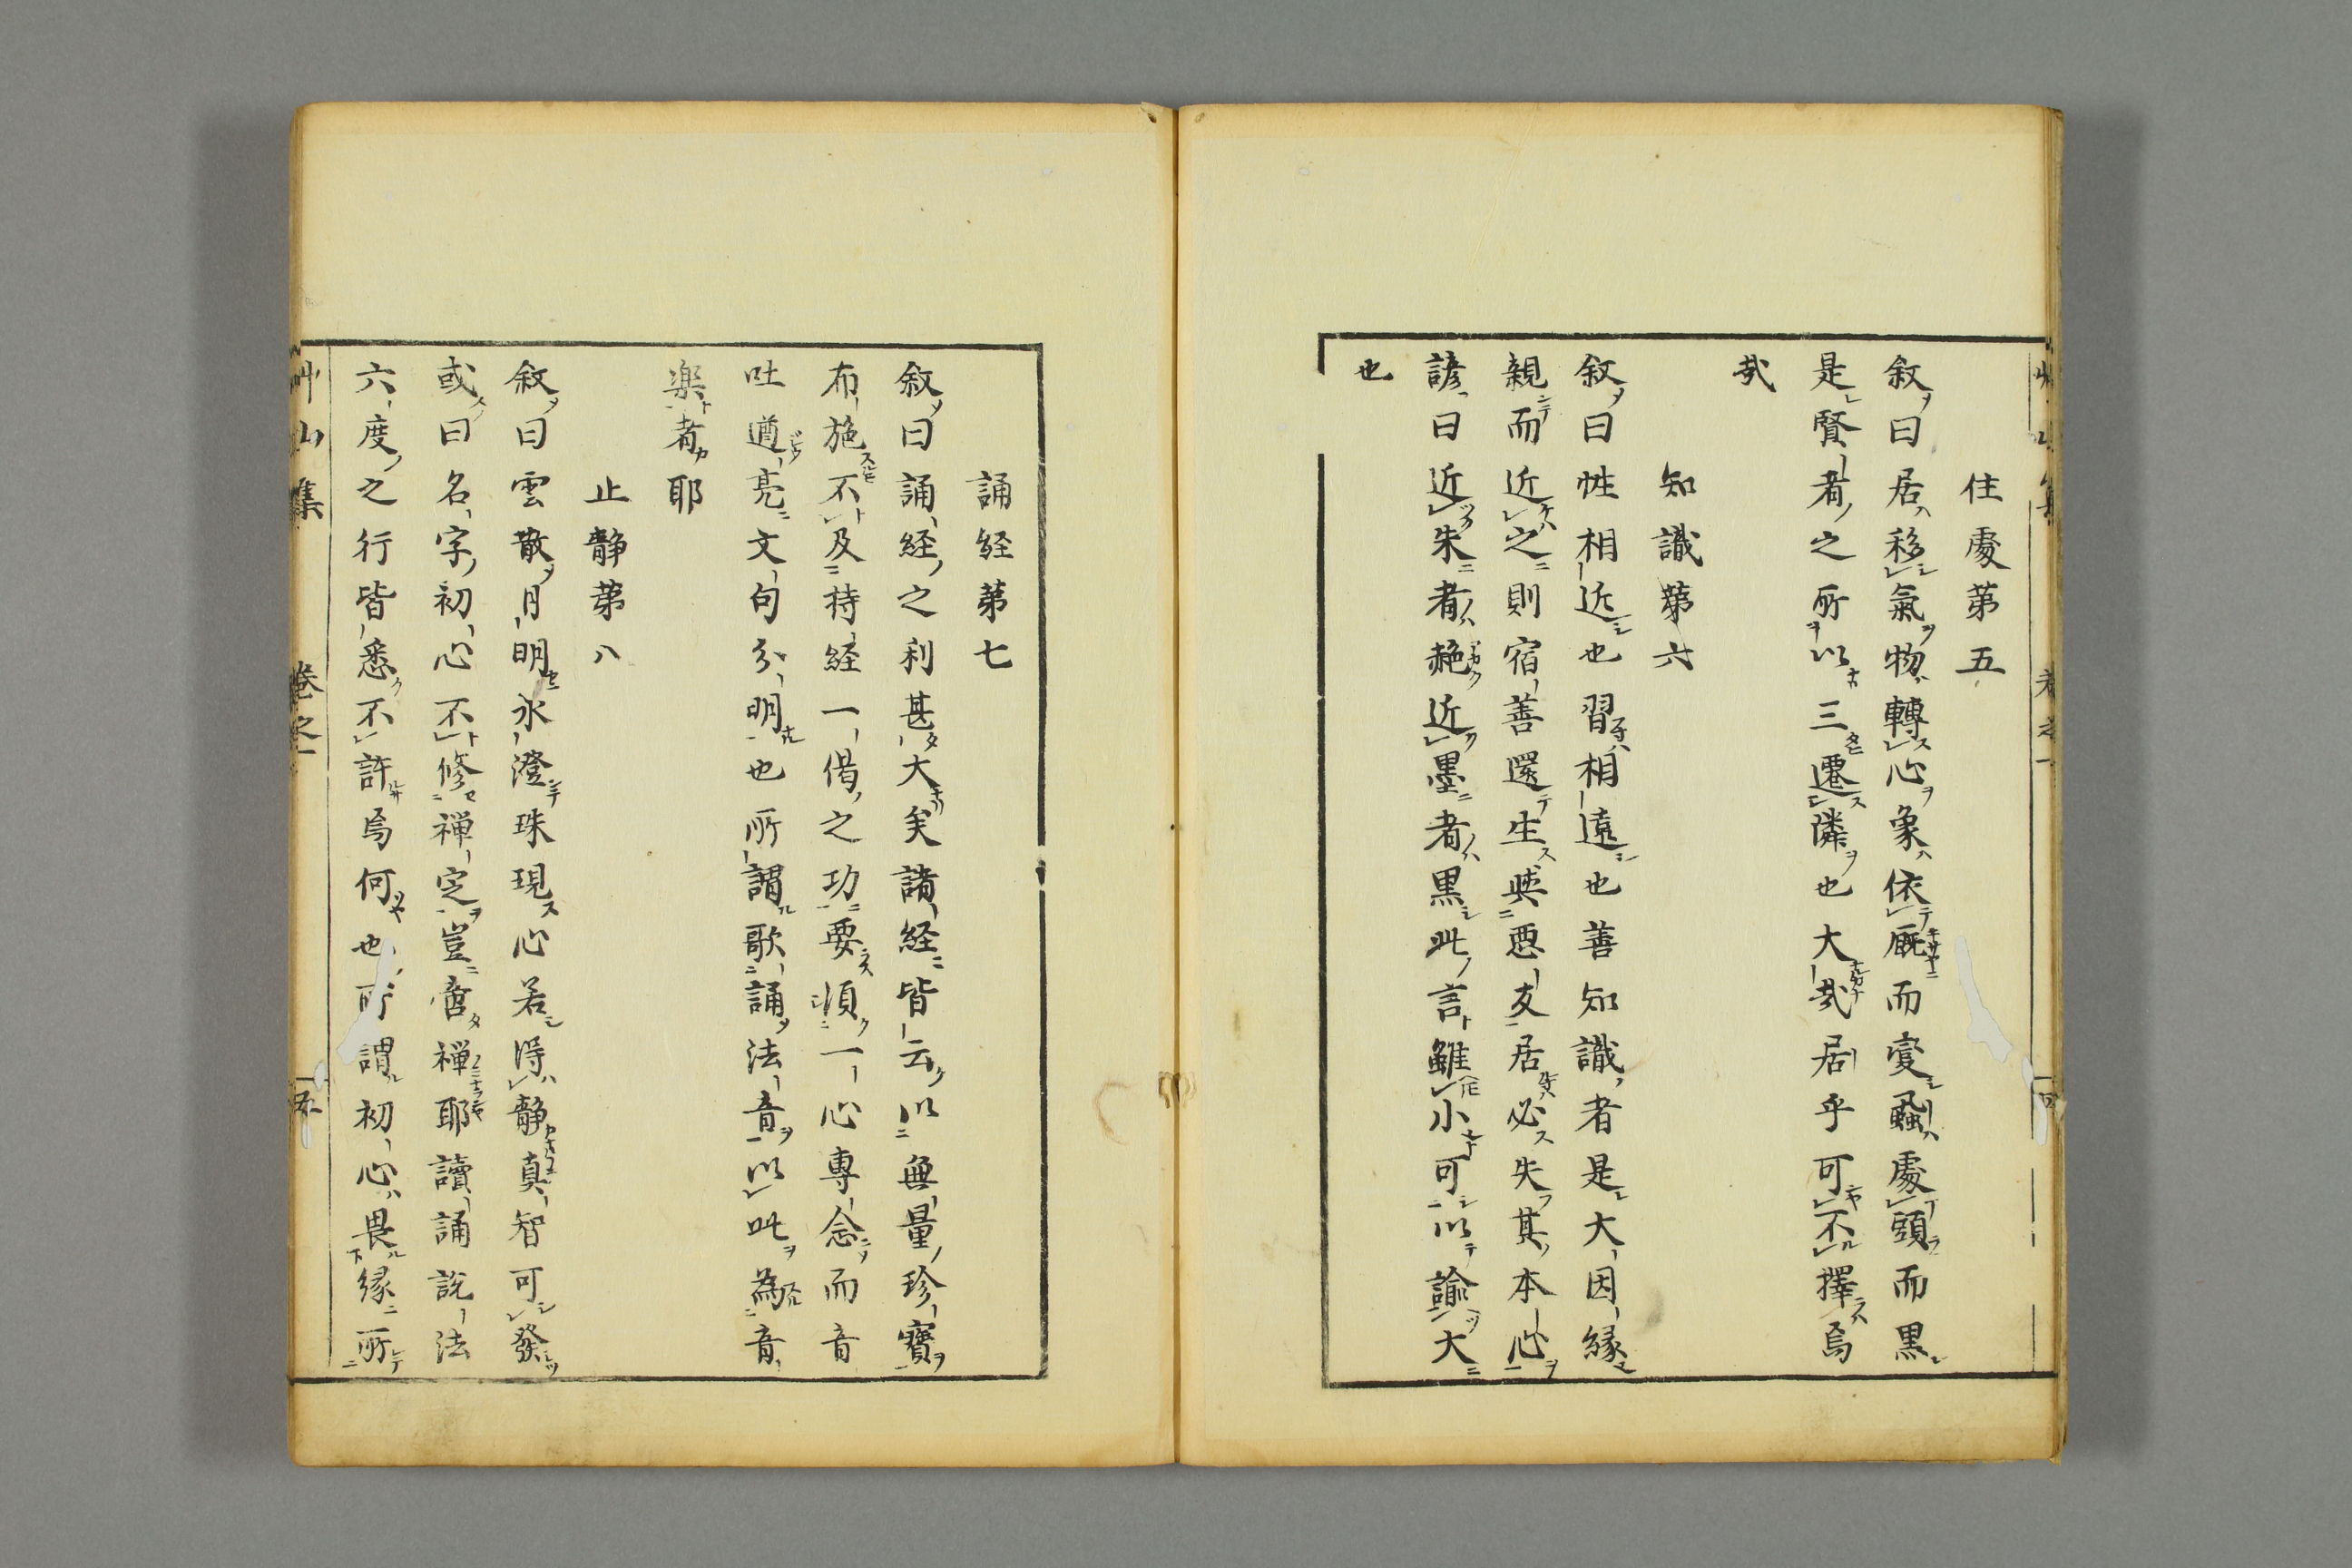 住處第五
叙曰居移氣物轉心象依厩而變蝨處頭而黒
是賢者之所以三遷隣也大哉居乎可不擇焉
哉
知識第六
叙曰性相近也習相遠也善知識者是大因縁
親而近之則宿善還生與悪友居必失其本心
諺曰近朱者赩近墨者黒此言雖小可以諭大
也
誦経第七
叙曰誦経之利甚大矣諸経皆云以無量珍寶
布施不及持経一偈之功要須一心專念而音
吐遒亮文句分明也所謂歌誦法音以此為音
楽者耶
止静第八
叙曰雲散月明水澄珠現心若得静真智可發
或曰名字初心不修禅定豈啻禅耶讀誦説法
六度之行皆悉不許焉何也所謂初心畏縁所
艸山集 巻之一 五